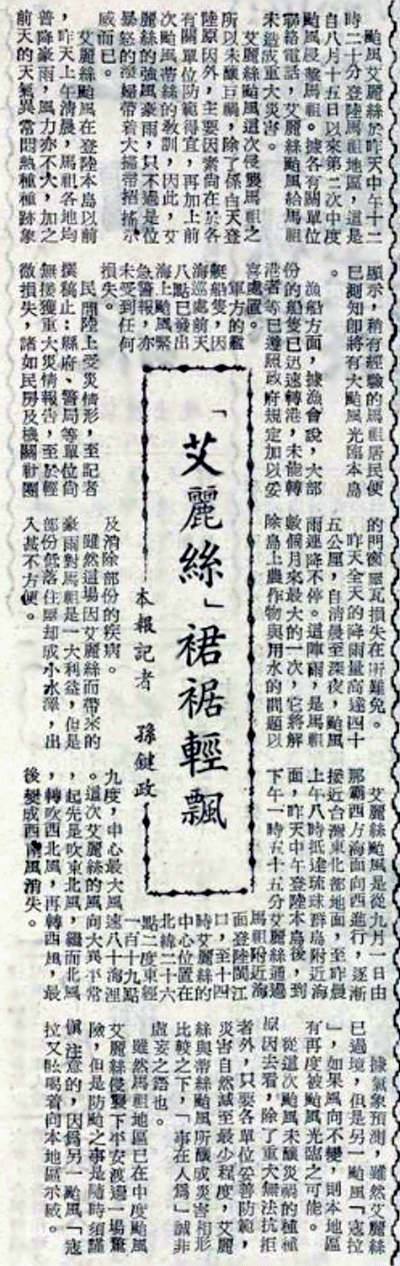 颱風艾麗絲於昨天中午十二
時二十分登陸馬祖地區，這是
自八月十五日以來第二次中度
颱風侵襲馬祖。據各有關單位
聯絡電話，艾麗絲颱風給馬祖
未造成重大災害。
艾麗絲颱風這次侵襲馬祖之
所以未釀巨禍，除了係白天登
陸原因外，主要因素尚在於各
有關單位防範得宜，再加上前
次颱風蒂絲的敎訓，因此，艾
麗絲的強風豪雨，只不過是位
暴怒的潑婦帶着大掃帚招搖示
威而已。
艾麗絲颱風在登陸本島以前
，昨天上午清晨，馬祖各地均
普降豪雨，風力亦不大，加之
前天的天氣異常悶熱種種跡象
顯示，稍有經驗的馬祖居民便
已測知即將有大颱風光臨本島
。
漁船方面，據漁會說，大部
份的船隻已迅速轉港，未能轉
港者等已遵照政府規定加以妥
善處置。
軍方的艦
艇船隻，因
海巡處前天
八點已發出
海上颱風緊
急警報，亦
未受到任何
損失。
民間陸上受災情形，至記者
撰稿止：縣府、警局等單位尚
無接獲重大災情報告，至於輕
微損失，諸如民房及機關社團
「艾麗絲」裙裾輕飄
本報記者 孫鍵政
的門窗屋瓦損失在所難免。
昨天全天的降雨量高達四十
五公厘，自清晨至深夜，颱風
雨連降不停。這陣雨，是馬祖
數個月來最大的一次，它將解
除島上農作物與用水的問題以
及消除部份的疾病。
雖然這場因艾麗絲而帶來的
豪雨對馬祖是一大利益，但是
部份低落住屋却成小水澤，出
入甚不方便。
艾麗絲颱風是從九月一日由
那霸西方海面向西進行，逐漸
接近台灣東北部地面，至昨晨
上午八時抵達琉球群島附近海
面，昨天中午登陸本島後，到
下午一時五十五分艾麗絲通過
馬祖附近海
面登陸閩江
口，至十四
時艾麗絲的
中心位置在
北緯二十六
點二度東經
一百十九點
九度，中心最大風速八十海浬
。這次艾麗絲的風向大異平常
，起先是吹東北風，繼而北風
，轉吹西北風，再轉西風，最
後變成西南風消失。
據氣象預測，雖然艾麗絲
已過境，但是另一颱風「寇拉
」，如果風向不變，則本地區
有再度被颱風光臨之可能。
從這次颱風未釀災禍的種種
原因去看，除了重大無法抗拒
者外，只要各單位妥善防範，
災害自然減至最少程度，艾麗
絲與蒂絲颱風所釀成災害相形
比較之下，「事在人為」誠非
虛妄之語也。
雖然馬祖地區已在中度颱風
艾麗絲侵襲下平安渡過一場驚
險，但是防颱之事是隨時須謹
慎注意的，因爲另一颱風「寇
拉又吆喝着向本地區示威。